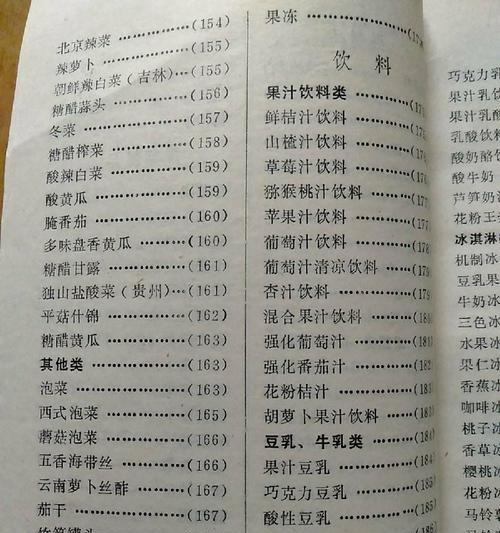 北京辣菜 ………………(154)
辣萝卜 …………………(155)
朝鲜辣白菜（吉林）…(155)
糖醋蒜头 ………………(156)
冬菜 ……………………(157)
糖醋榨菜 ………………(158)
酸辣白菜 ………………(159)
酸黄瓜 …………………(159)
腌番茄 …………………(160)
多味盘香黄瓜 …………(160)
糖醋甘露 ………………(161)
独山盐酸菜（贵州）…(161)
平菇什锦 ………………(162)
糖醋黄瓜 ………………(163)
其他类 …………………(163)
泡菜 ……………………(163)
西式泡菜 ………………(165)
蘑菇泡菜 ………………(166)
五香海带丝 ……………(166)
云南萝卜丝酢 …………(167)
茄干 ……………………(167)
果冻
饮料
果汁饮料类
鲜桔汁饮料
山楂汁饮料
草莓汁饮料
猕猴桃汁饮料
苹果汁饮料
葡萄汁饮料 ……………(178
葡萄汁清凉饮料 ………(179
杏汁饮料 ………………(179
混合果汁饮料
强化葡萄汁 ……………(181)
强化番茄汁 ……………(182
花粉桔汁 ………………(183
胡萝卜果汁饮料 ………(183
豆乳、牛乳类 …………(184
果汁豆乳 ………………(184
巧克力豆乳 ……………(185
酸性豆乳 ………………(185
(186
巧克力乳
果汁乳饮
果汁乳酸
乳酸饮料
酸奶酪饮
酸牛奶
芦笋奶
花粉王
冰淇淋
机制冰
豆乳果
牛奶冰
三色冰
水果冰
果仁冰
香蕉冰
咖啡冰
桃子冰
香草冰
樱桃冰
花粉冰
马铃薯